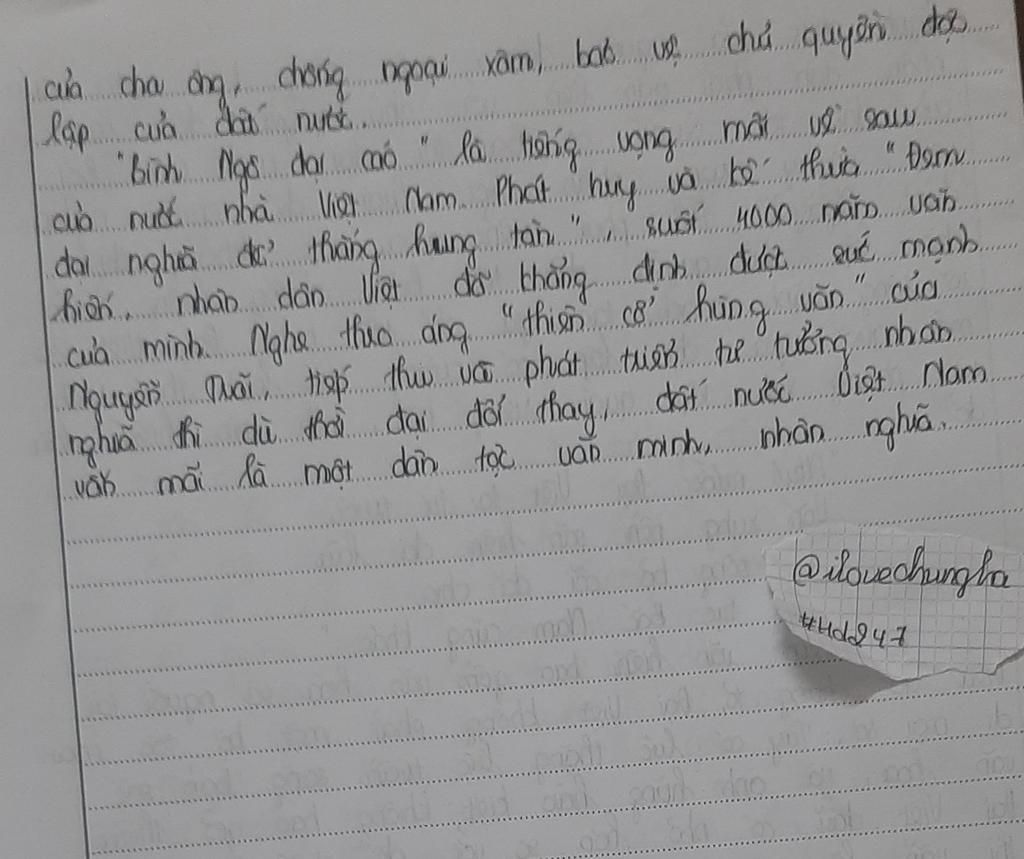 của cha ông, chống ngoại xâm, bảo vệ chủ quyền độc
lập của đất nước.
"Bình Ngô đại cáo" là tiếng vọng mãi về sau
của nước nhà Việt Nam. Phát huy và kế thừa "Đem
đại nghĩa để thắng hung tàn", suốt 4000 năm văn
hiến, nhân dân Việt đã khẳng định được sức mạnh
của mình. Nghe theo áng "thiên cổ hùng văn" của
Nguyễn Trãi, tiếp thu và phát triển tư tưởng nhân
nghĩa thì dù thời đại đổi thay, đất nước Việt Nam
vẫn mãi là một dân tộc văn minh, nhân nghĩa.
@ilovechungha
#Hd247